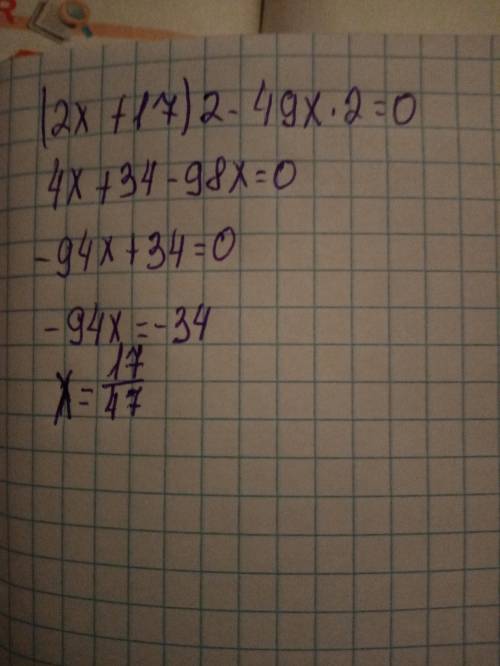 (2x + 17) 2 - 49x · 2 = 0
4x + 34 - 98x = 0
- 94x + 34 = 0
- 94x = -34
x = 17/47